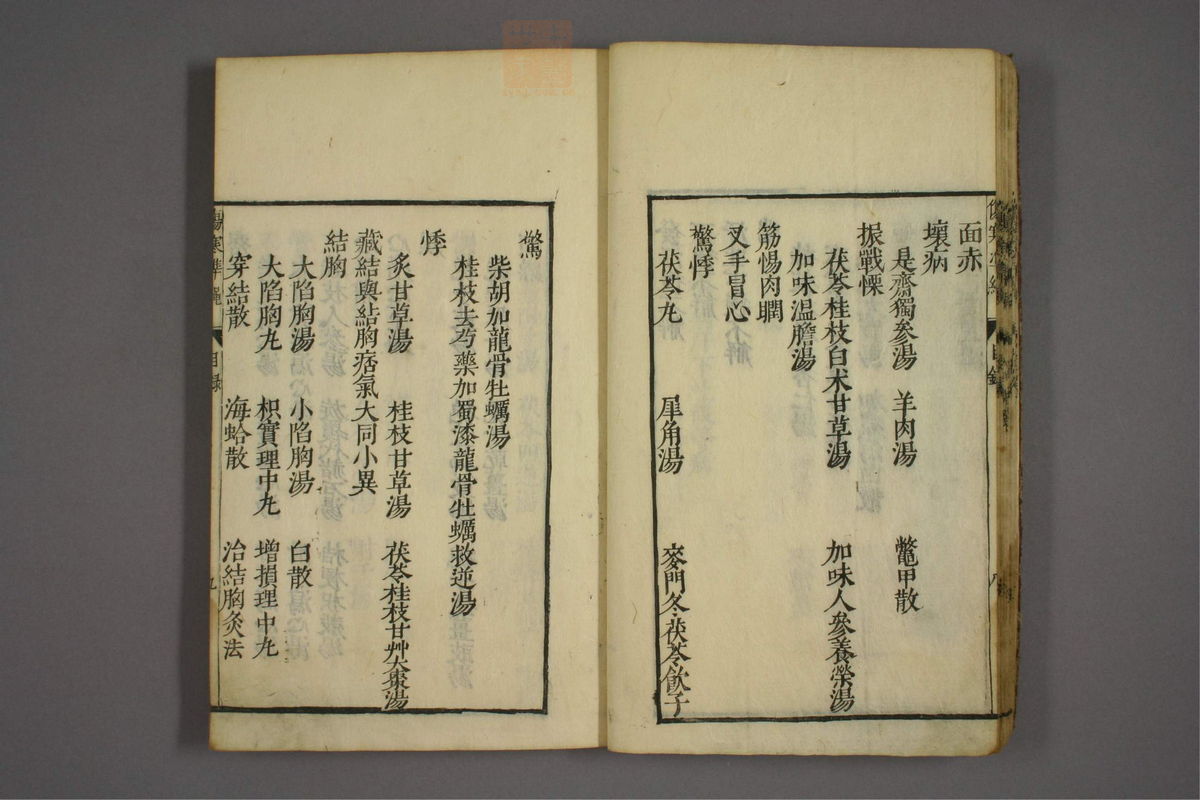 面赤
壞病
是齋獨參湯 羊肉湯 鼈甲散
振戰慄
茯苓桂枝白术甘草湯 加味人參養榮湯
加味温膽湯
筋惕肉瞤
叉手冒心
驚悸
茯苓丸 犀角湯 麥門冬茯苓飲子
驚
柴胡加龍骨牡蠣湯
桂枝去芍藥加蜀漆龍骨牡蠣救逆湯
悸
炙甘草湯 桂枝甘草湯 茯苓桂枝甘艸大棗湯
藏結與結胸痞氣大同小異
結胸
大陷胸湯 小陷胸湯 白散
大陷胸丸 枳實理中丸 增損理中丸
穿結散 海蛤散 治結胸灸法
傷寒準繩 目録 九